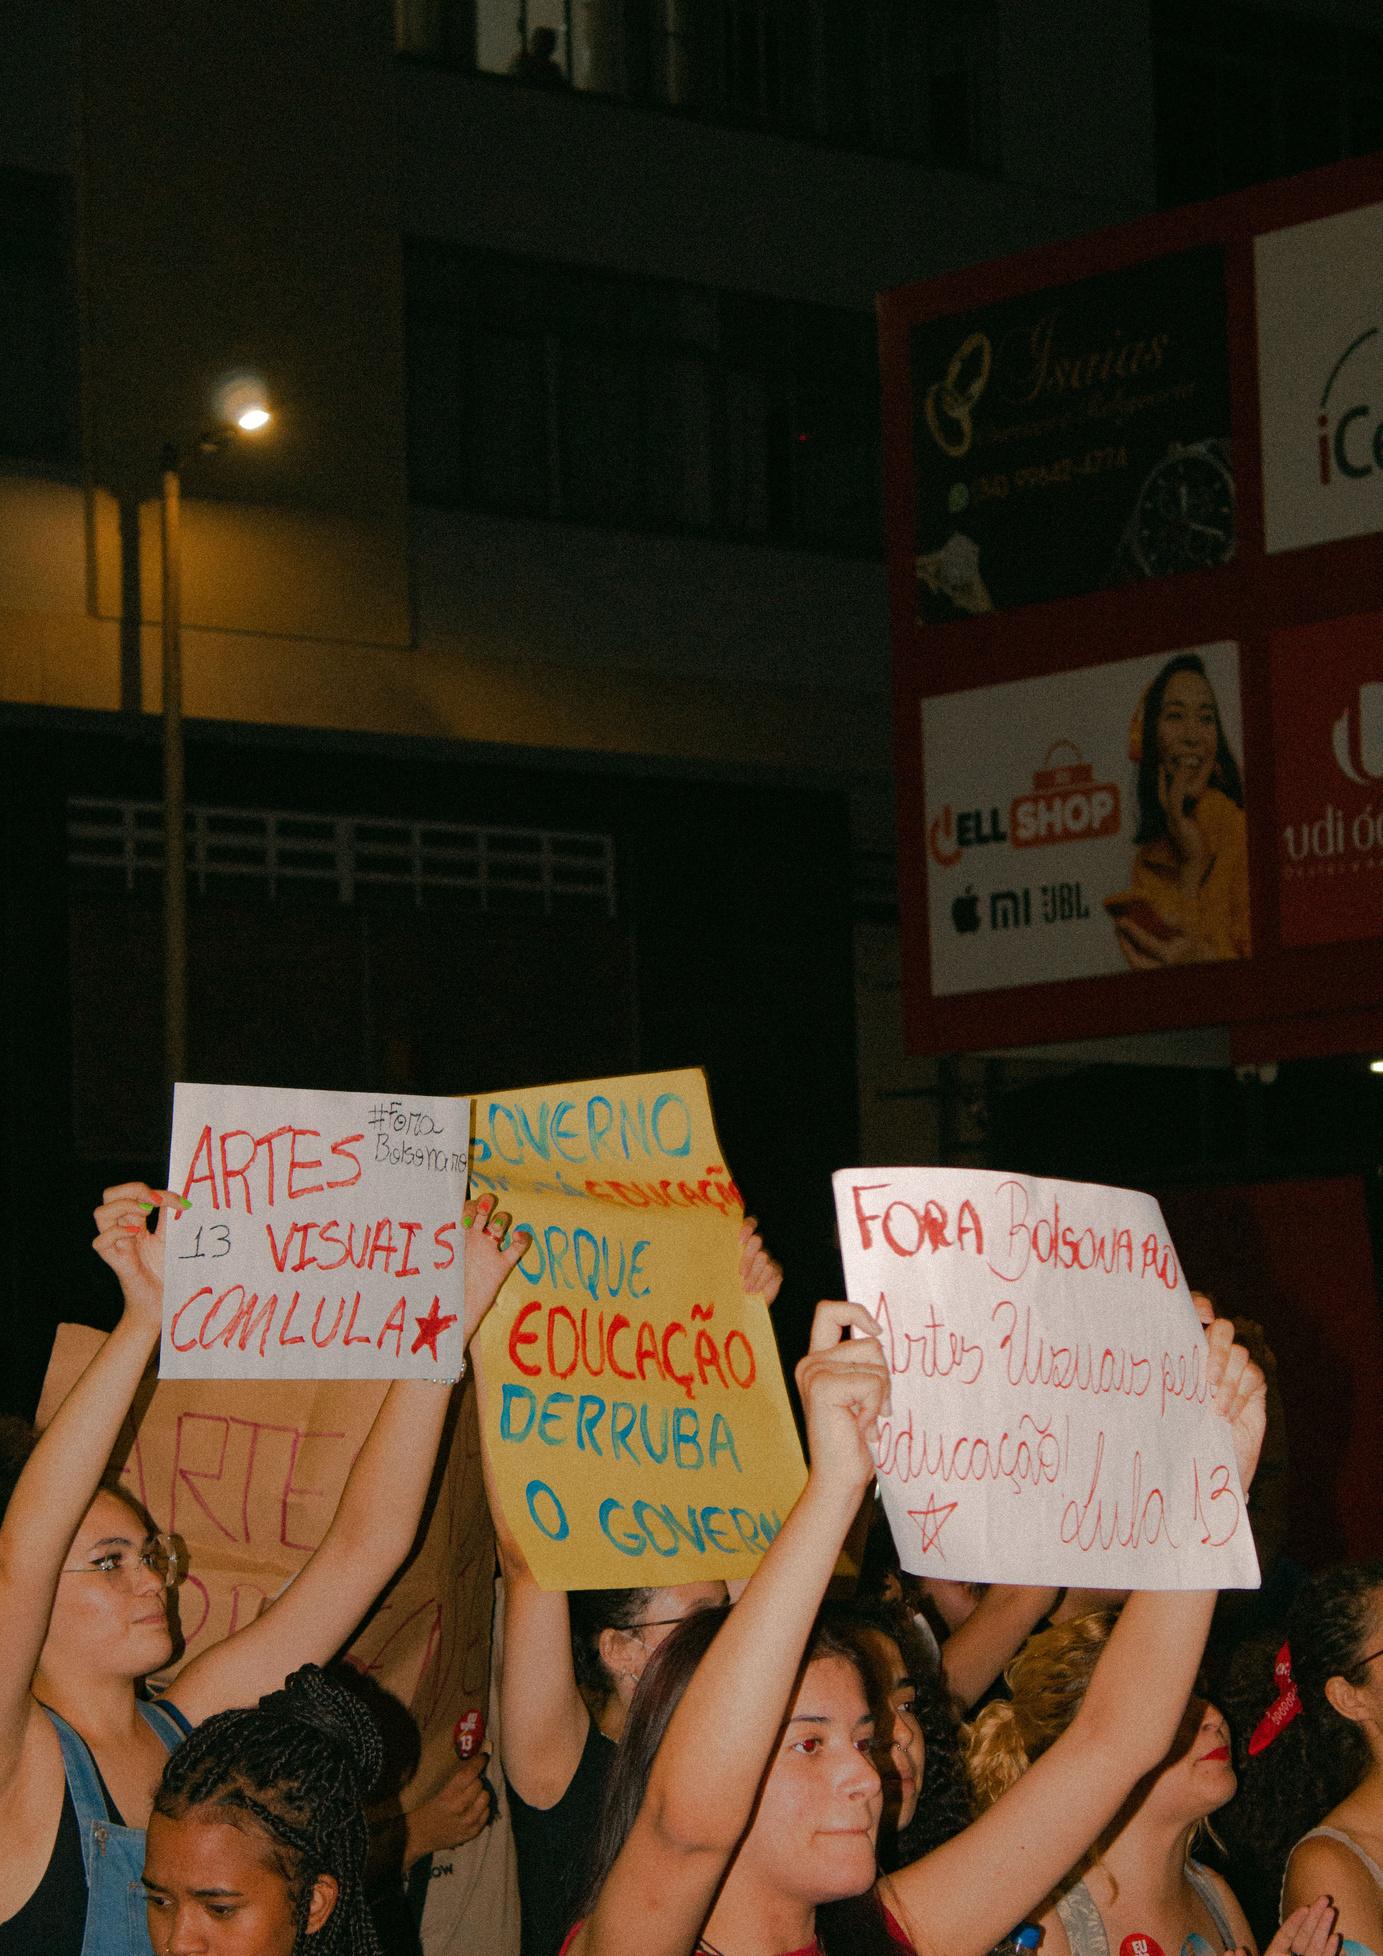 Isaias
(34) 99642-4774
CELL SHOP
mi JBL
udi
ARTES
#Fora
Bolsonaro
13 VISUAIS
COM LULA
GOVERNO
EDUCAÇÃ
PORQUE
EDUCAÇÃO
DERRUBA
O GOVERN
FORA BOLSONARO
Artes Visuais pel
educação!
Lula 13
ARTE
13
EU